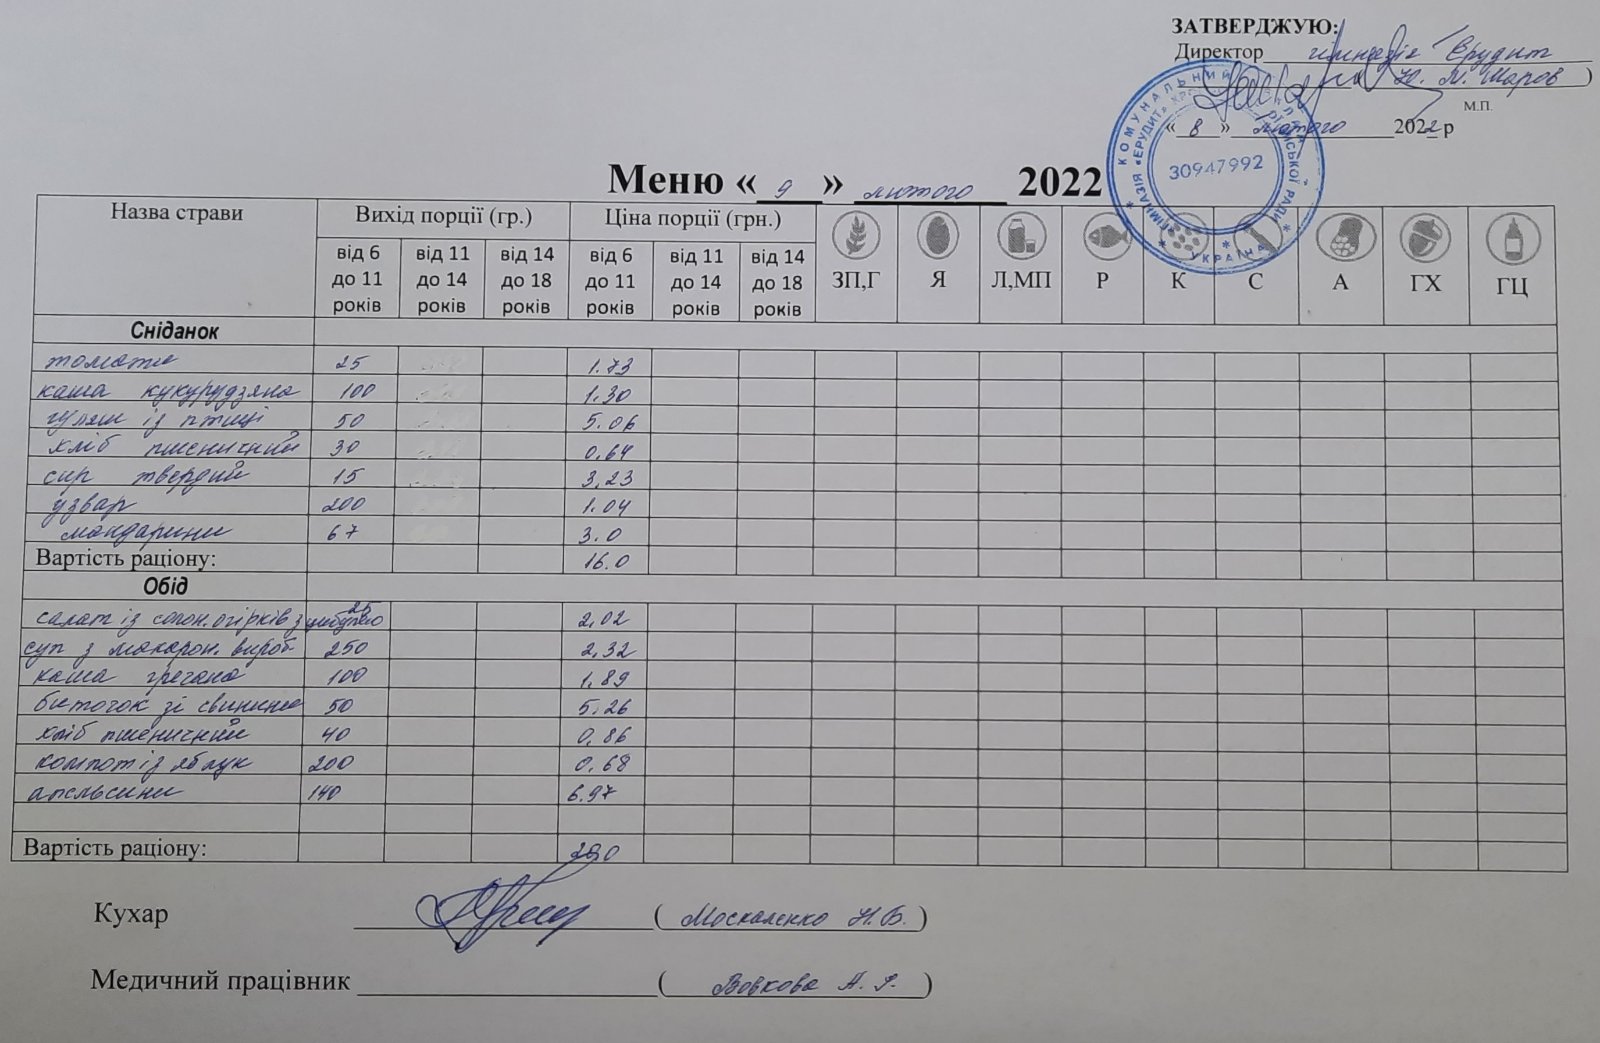 ЗАТВЕРДЖУЮ:
Директор гімназія Ерудит
( Ю. М. Шаров )
М.П.
« 8 » лютого 2022 р
КОМУНАЛЬНИЙ ЗАКЛАД
ГІМНАЗІЯ «ЕРУДИТ»
МІСЬКОЇ РАДИ
УКРАЇНА
30947992
Меню « 9 » лютого 2022
Назва страви Вихід порції (гр.) Ціна порції (грн.)
від 6 до 11 років від 11 до 14 років від 14 до 18 років від 6 до 11 років від 11 до 14 років від 14 до 18 років ЗП,Г Я Л,МП Р К С А ГХ ГЦ
Сніданок
томати 25 1.73
каша кукурудзяна 100 1.30
гуляш із птиці 50 5.06
хліб пшеничний 30 0,64
сир твердий 15 3,23
узвар 200 1.04
мандарини 67 3.0
Вартість раціону: 16.0
Обід
салат із солон. огірків з цибулею 25 2,02
суп з макарон. вироб. 250 2,32
каша гречана 100 1,89
биточок зі свинини 50 5.26
хліб пшеничний 40 0,86
компот із яблук 200 0,68
апельсини 140 6.97
Вартість раціону: 20.0
Кухар ( Москаленко Н.В. )
Медичний працівник ( Вовкова А. )